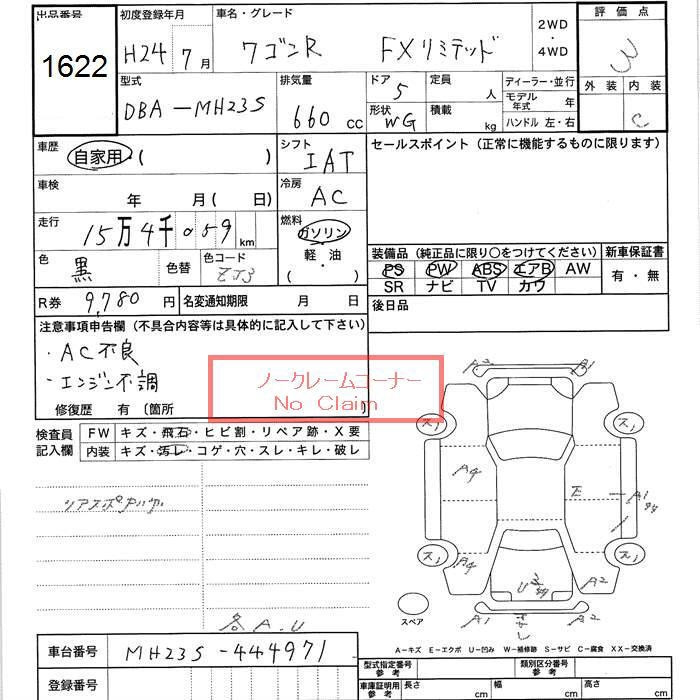 出品番号
1622
初度登録年月
H24 7月
車名・グレード
ワゴンR FXリミテッド
2WD
・
4WD
評価点
3
外装 内装
C
型式
DBA-MH23S
排気量
660 cc
ドア
5
形状
WG
定員
人
積載
kg
ディーラー・並行
モデル年式 年
ハンドル 左・右
車歴
自家用・( )
シフト
IAT
車検
年 月(日)
冷房
AC
走行
15万4千059 km
燃料
ガソリン
・
軽・油
・
( )
色
黒
色替
色コード
ZJ3
R券 9,780 円
名変通知期限 月 日
セールスポイント(正常に機能するものに限ります)
装備品(純正品に限り○をつけてください)
新車保証書
PS PW ABS エアB AW
SR ナビ TV カワ
有・無
後日品
注意事項申告欄(不具合内容等は具体的に記入して下さい)
・AC不良
・エンジン不調
修復歴 有〔箇所 〕
ノークレームコーナー
No Claim
検査員記入欄
FW キズ・飛石・ヒビ割・リペア跡・X要
内装 キズ・汚レ・コゲ・穴・スレ・キレ・破レ
各A.U
A2 A1
ス1 ス1
A4 E A1
ス1 ス1
A4 U A2
A1 A2
スペア
A-キズ E-エクボ U-凹み W-補修跡 S-サビ C-腐食 XX-交換済
車台番号 MH23S-444971
登録番号
型式指定番号
参考
類別区分番号
参考
車庫証明用
参考
長さ cm
幅 cm
高さ cm